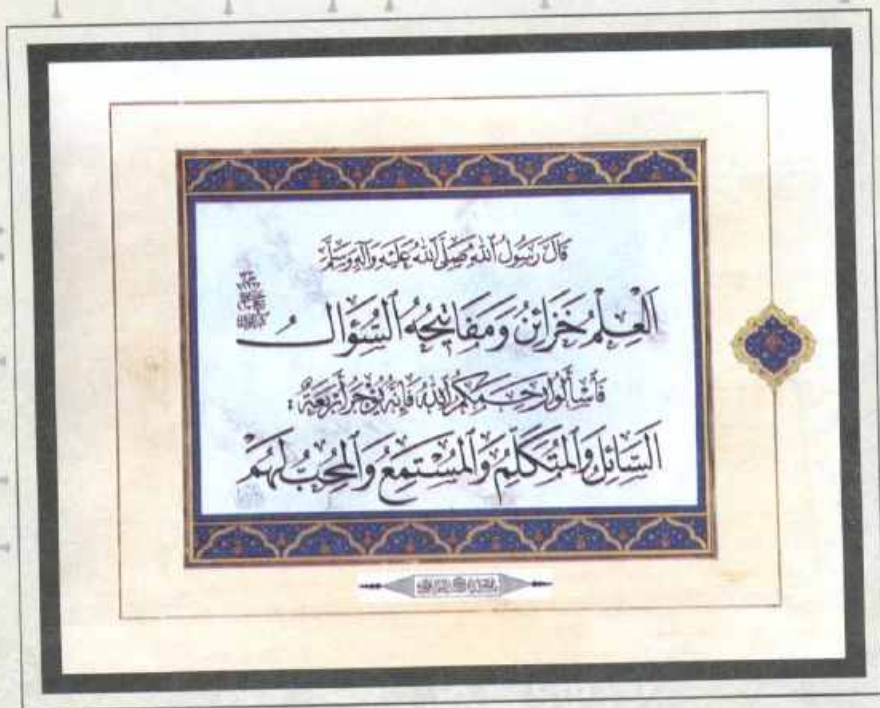 قَالَ رَسُولُ اللهِ صَلَّى اللهُ عَلَيْهِ وَآلِهِ وَسَلَّمَ
اَلْعِلْمُ خَزَائِنُ وَمَفَاتِيحُهُ السُّؤَالُ
فَاسْأَلُوا رَحِمَكُمُ اللهُ فَإِنَّهُ يُؤْجَرُ أَرْبَعَةٌ :
السَّائِلُ وَالْمُتَكَلِّمُ وَالْمُسْتَمِعُ وَالْمُحِبُّ لَهُمْ